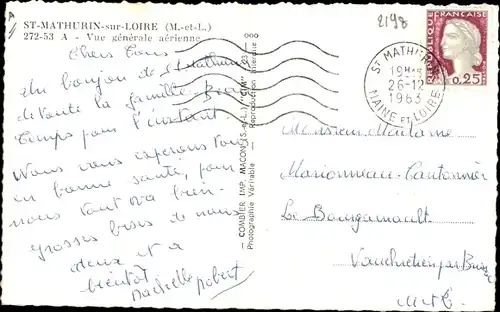 ST-MATHURIN-sur-LOIRE (M.-et-L.)
272-53 A - Vue générale aérienne
2198
REPUBLIQUE FRANÇAISE
0,25
ST MATHURIN
19H
26-12
1963
MAINE ET LOIRE
Chers Tous
Un bonjour de St Mathurin
de toute la famille. Beau
temps pour l'instant.
Nous vous espérons tous
en bonne santé, pour
nous tout va bien.
grosses bises de nous
deux et à
bientôt
robert
COMBIER IMP. MACON (S.-et-L.) "CIM"
Photographie Véritable - Reproduction interdite
Monsieur Madame
Marionneau Cantonnier
Le Bourgameault
par
M et L